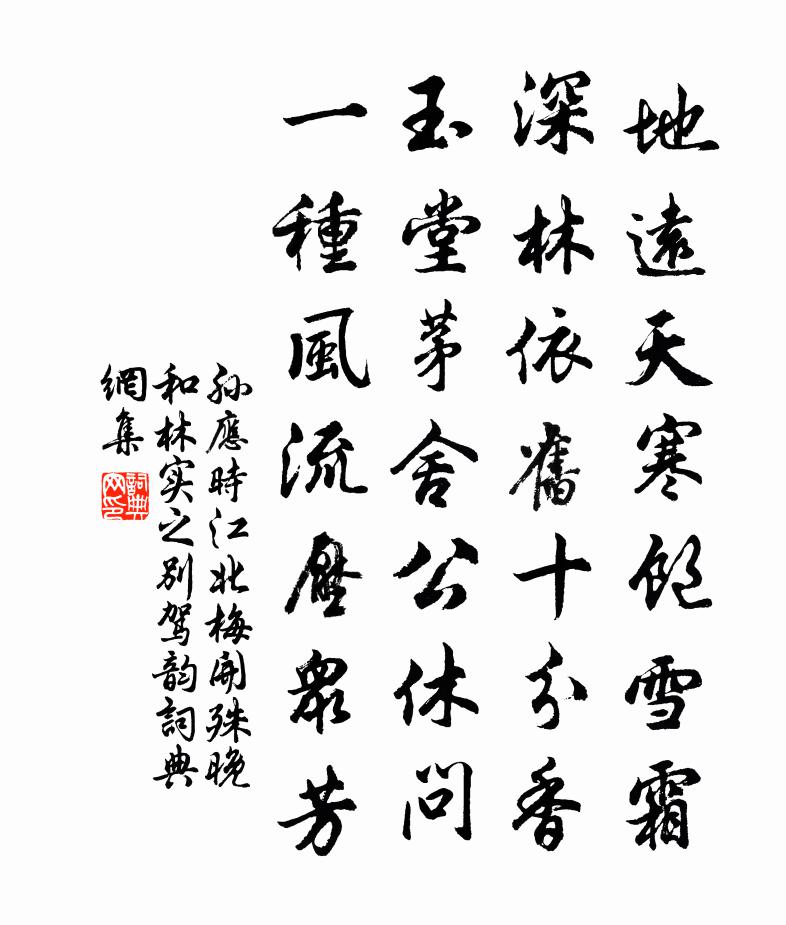 地遠天寒飽雪霜
深林依舊十分香
玉堂茅舍公休問
一種風流壓衆芳
孫應時江北梅開殊晚
和林实之别駕韵詞典
網集
詞典
网印